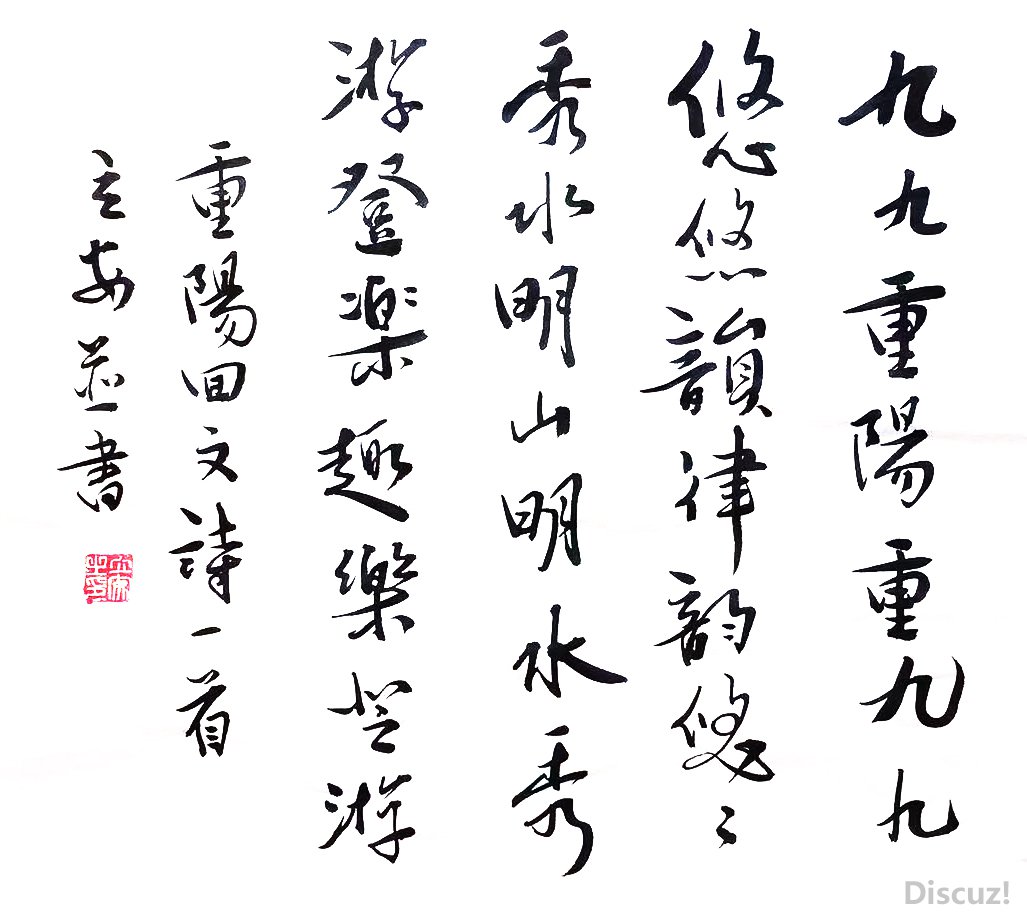 九九重陽重九九
悠悠韻律韵悠〻
秀水明山明水秀
游登楽趣樂登游
重陽回文詩一首
安並書
Discuz!